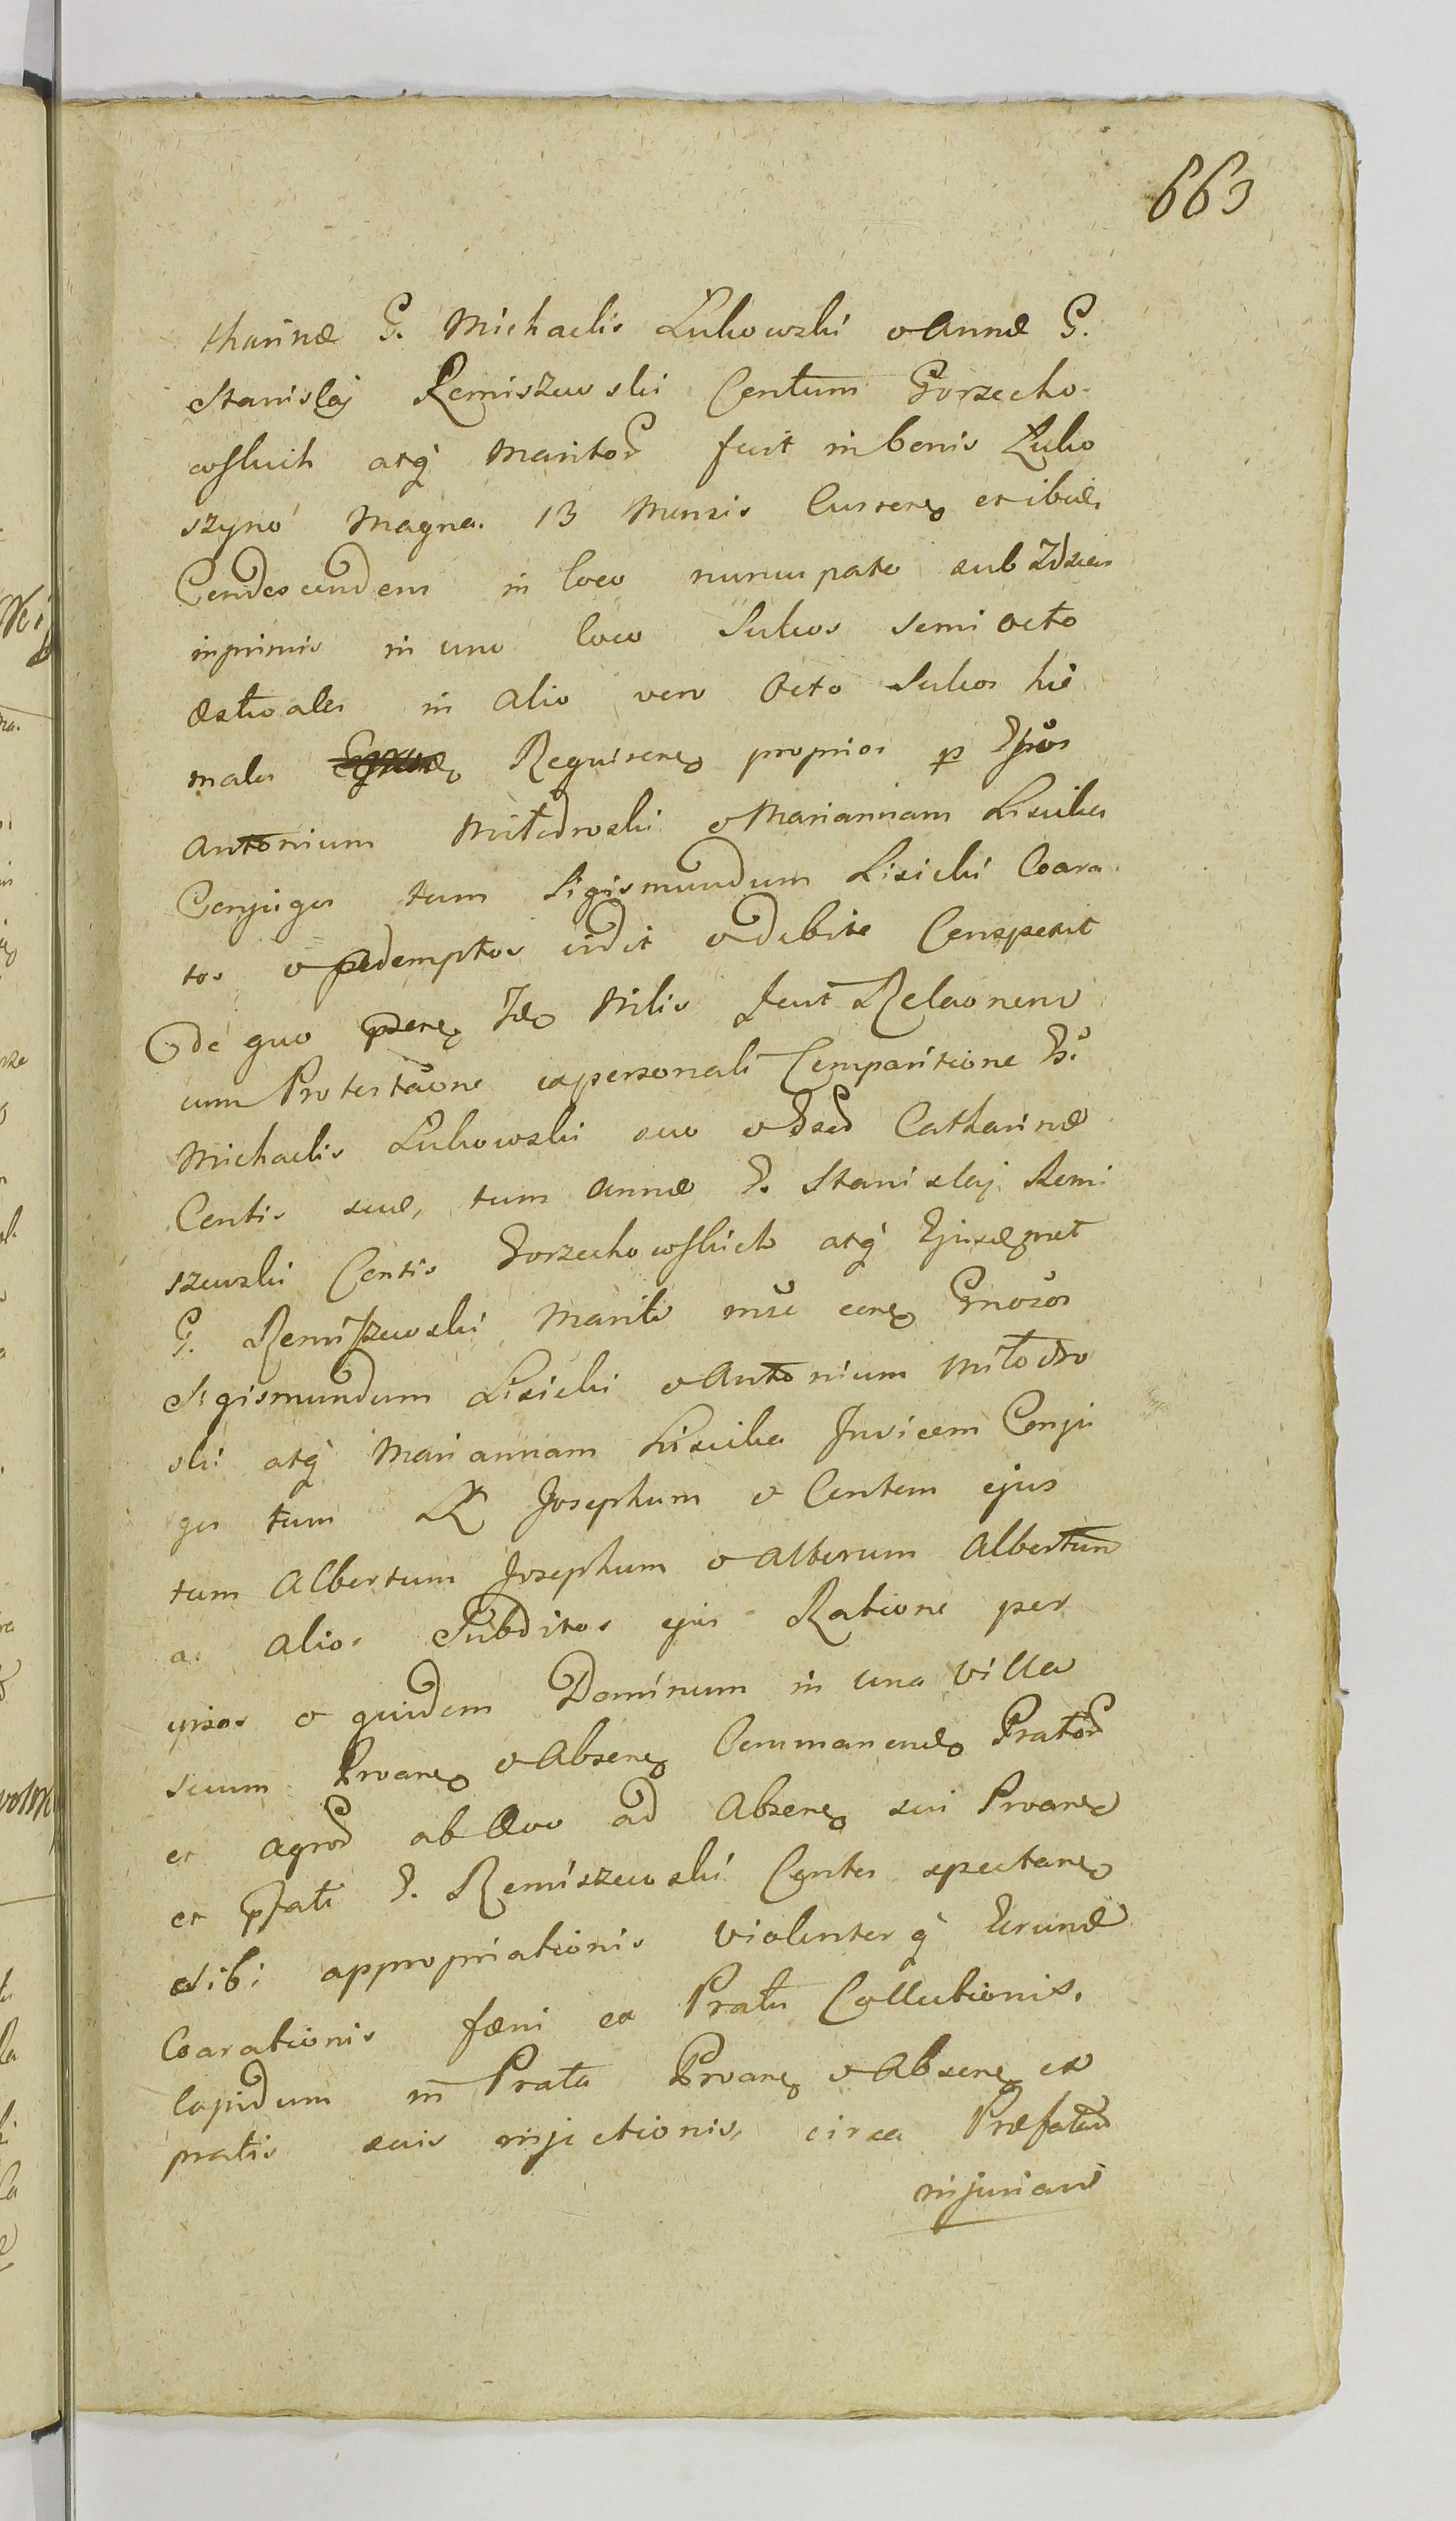 663
tharinæ G. Michaelis Łukowski & Annæ G.
Stanislaj Remiszewski Contum Gorzecho
wskich atq̀ Maritoꝝ fuit in bonis Łuko
szyno Magna. 13 Mensis Curreñ et ibidē
Condescendens in loco nuncupato sub
inprimis in uno loco Sulcos semi octo
æstivales in alio vero Octo Sulcos hie
males Requireñ proprios ꝑ
Antonium Miłodroski & Mariannam Lisicka
Conjuges tum Sigismundum Lisicki Coara
tos & vidit & debite Conspexit
De quo Nilis fecit Relaonem
cum Protestaone ex personali Comparitione G.
Michaelis Łukowski suo & Catharinæ
Contis suæ, tum Annæ G. Stanislaj Remi
szewski Contis Gorzechowskich atq̀ Ejusdemet
G. Remiszewski Mariti Gnosos
Sigismundum Lisicki & Antonium Miłodro
ski atq̀ Mariannam Lisicka Invicem Conju
ges tum Josephum & Contem ejus
tum Albertum Josephum & Alterum Albertum
ac alios Subditos ejus Ratione per
ipsos & quidem Dominum in una villa
secum Proañ & Abseñ Commaneñ Pratoꝝ
et agroꝝ ab Ævo ad Abseñ sui Proañ
et pfati G. Remiszewski Contes spectañ
sibi appropriationis violenterq̀ Eorundē
Coarationis fæni ex Pratis Collectionis,
lapidum in Prata Proañ & Abseñ ex
pratis suis injectionis, circa Præfatū
injuriam